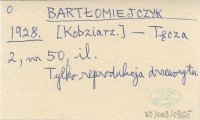 O
BARTŁOMIEJCZYK
1928. [Kobziarz.] — Tęcza
2, nr 50, il.
Tylko reprodukcja drzeworytu.